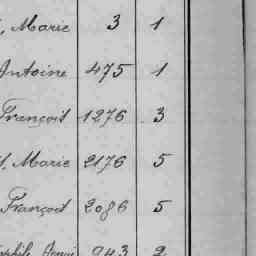 , Marie 3 1
Antoine 475 1
François 1276 3
, Marie 2176 5
François 2086 5
943 2